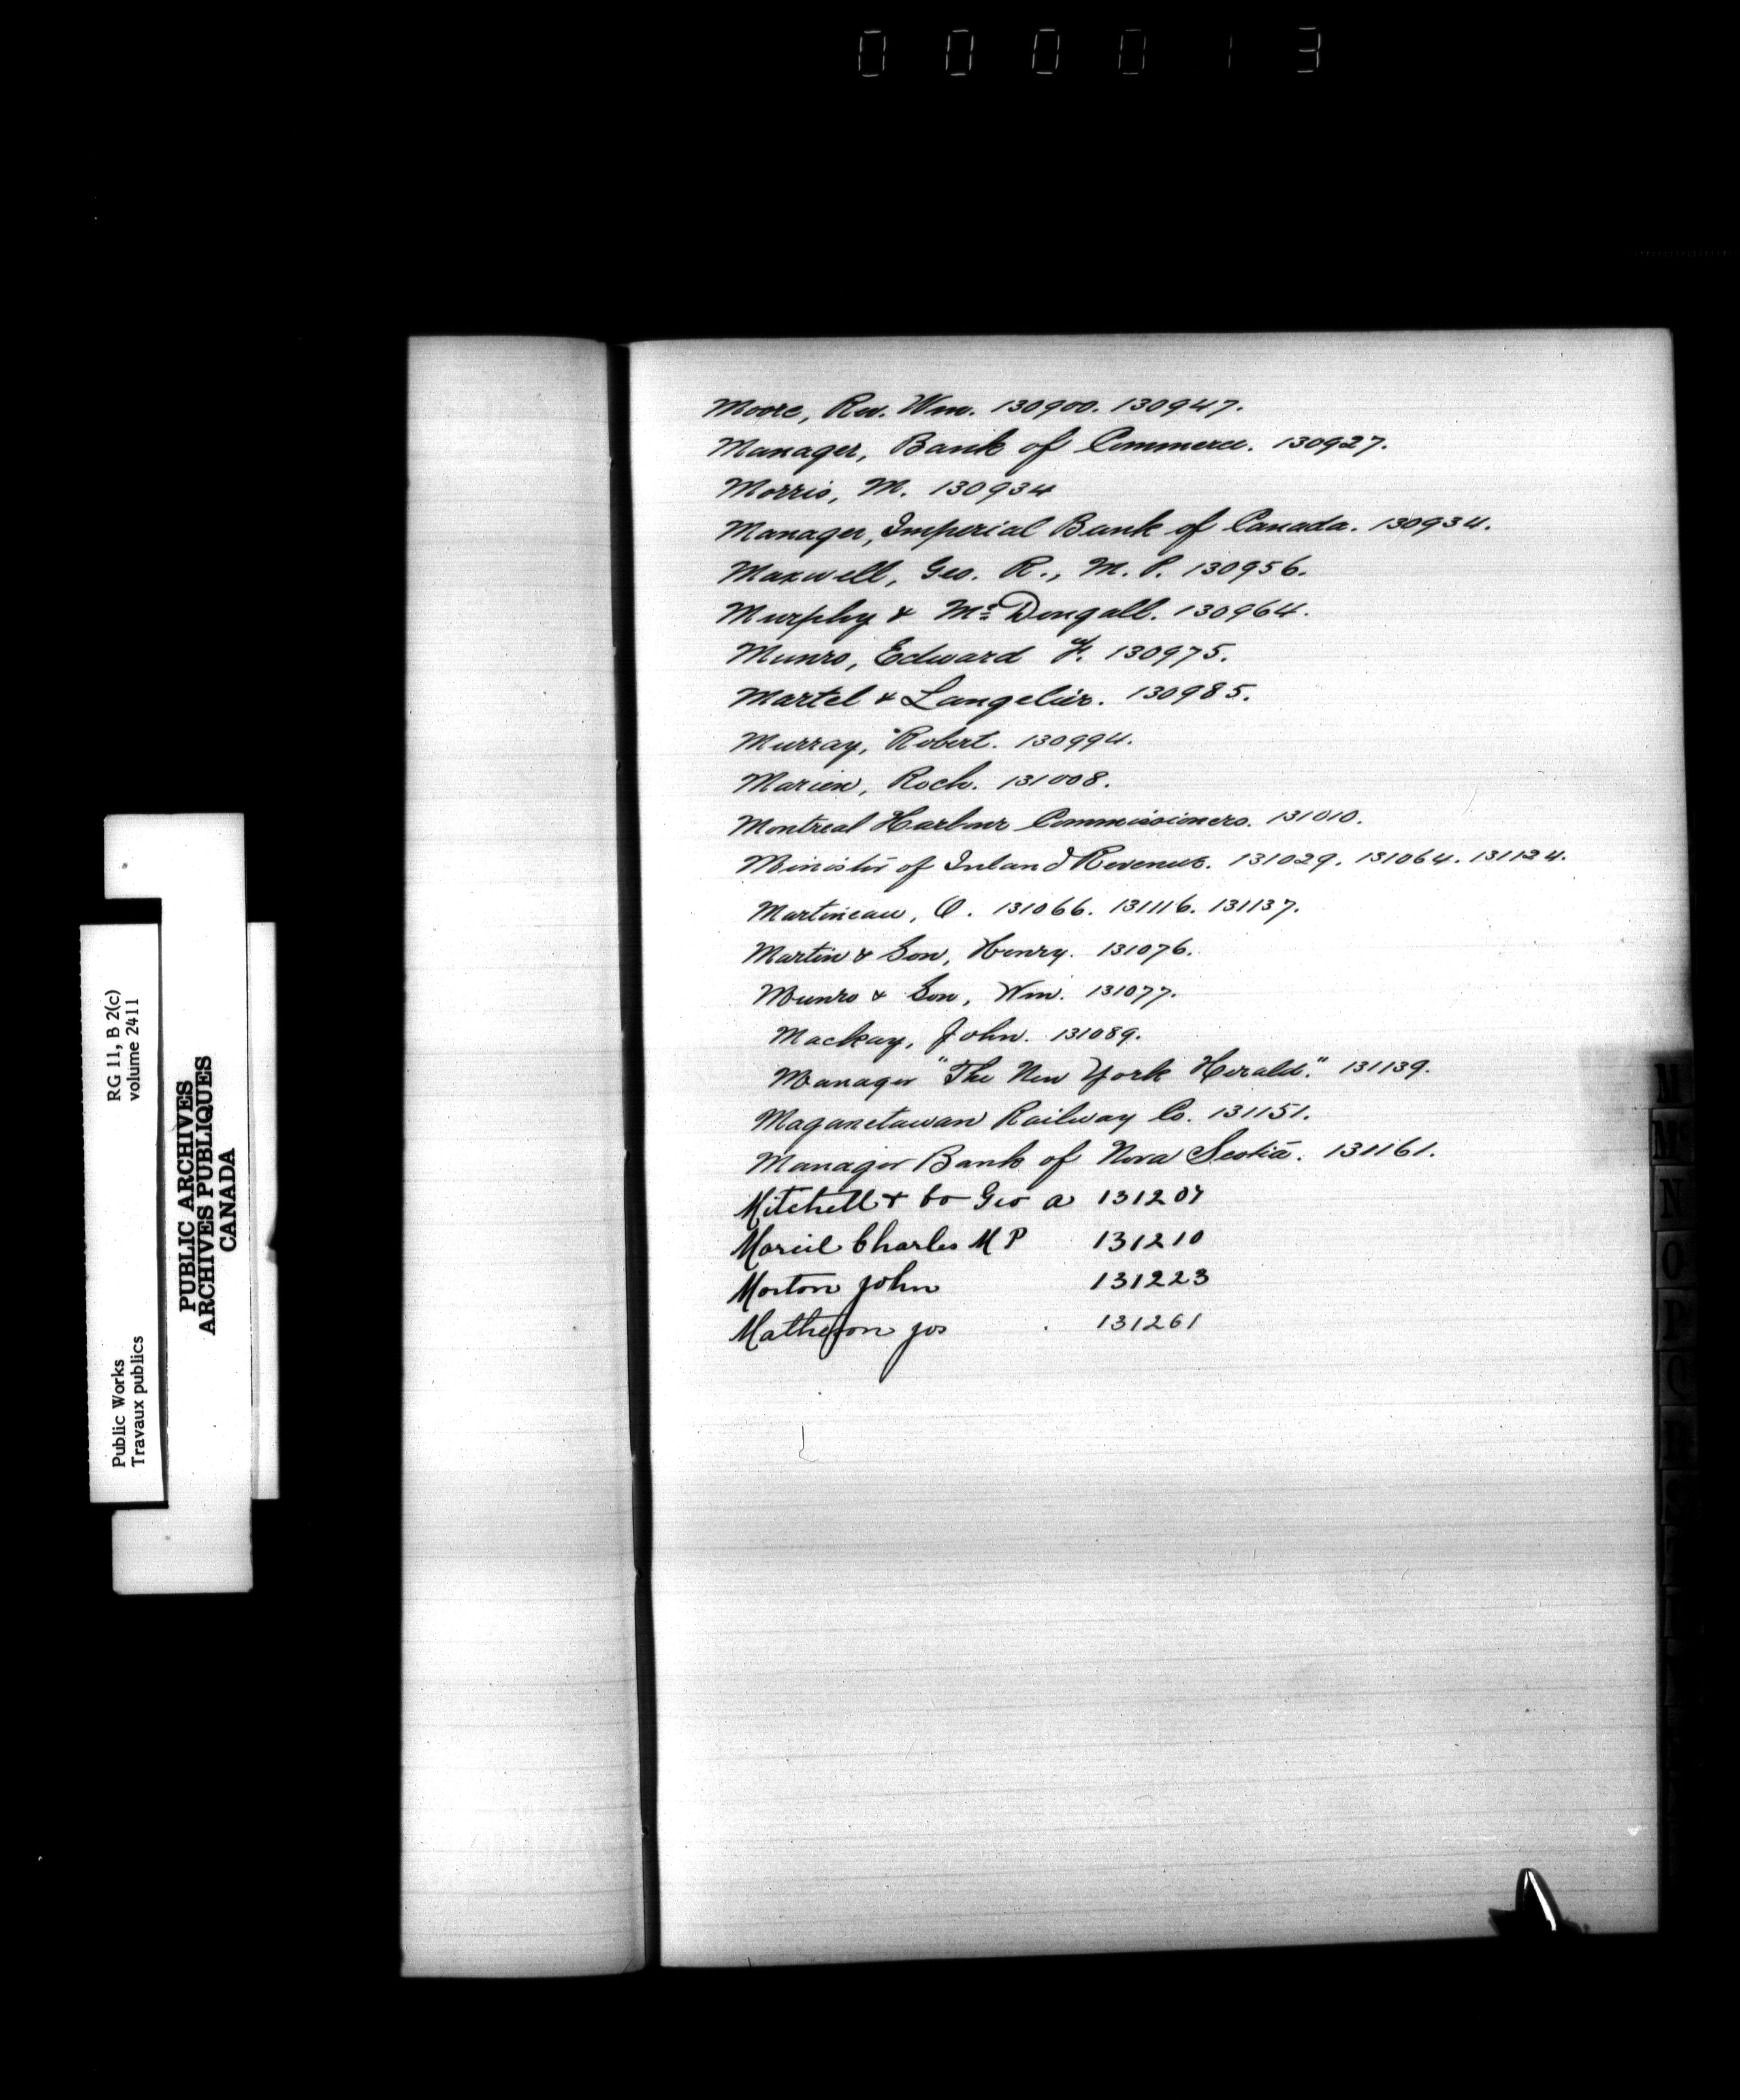 0 0 0 0 1 3
Moore, Rev. Wm. 130900. 130947.
Manager, Bank of Commerce. 130927.
Morris, M. 130934
Manager, Imperial Bank of Canada. 130934.
Maxwell, Geo. R., M. P. 130956.
Murphy & Mc Dougall. 130964.
Munro, Edward F. 130975.
Martel & Langelier. 130985.
Murray, Robert. 130994.
Marion, Roch. 131008.
Montreal Harbour Commissioners. 131010.
Minister of Inland Revenue. 131029. 131064. 131124.
Martineau, O. 131066. 131116. 131137.
Martin & Son, Henry. 131076.
Munro & Son, Wm. 131077.
Mackay, John. 131089.
Manager "The New York Herald." 131139.
Maganetawan Railway Co. 131151.
Manager Bank of Nova Scotia. 131161.
Mitchell & Co Geo A 131207
Marcil Charles M P 131210
Morton John 131223
Matheson Jos 131261
RG 11, B 2(c)
volume 2411
Public Works
Travaux publics
PUBLIC ARCHIVES
ARCHIVES PUBLIQUES
CANADA
M
N
O
P